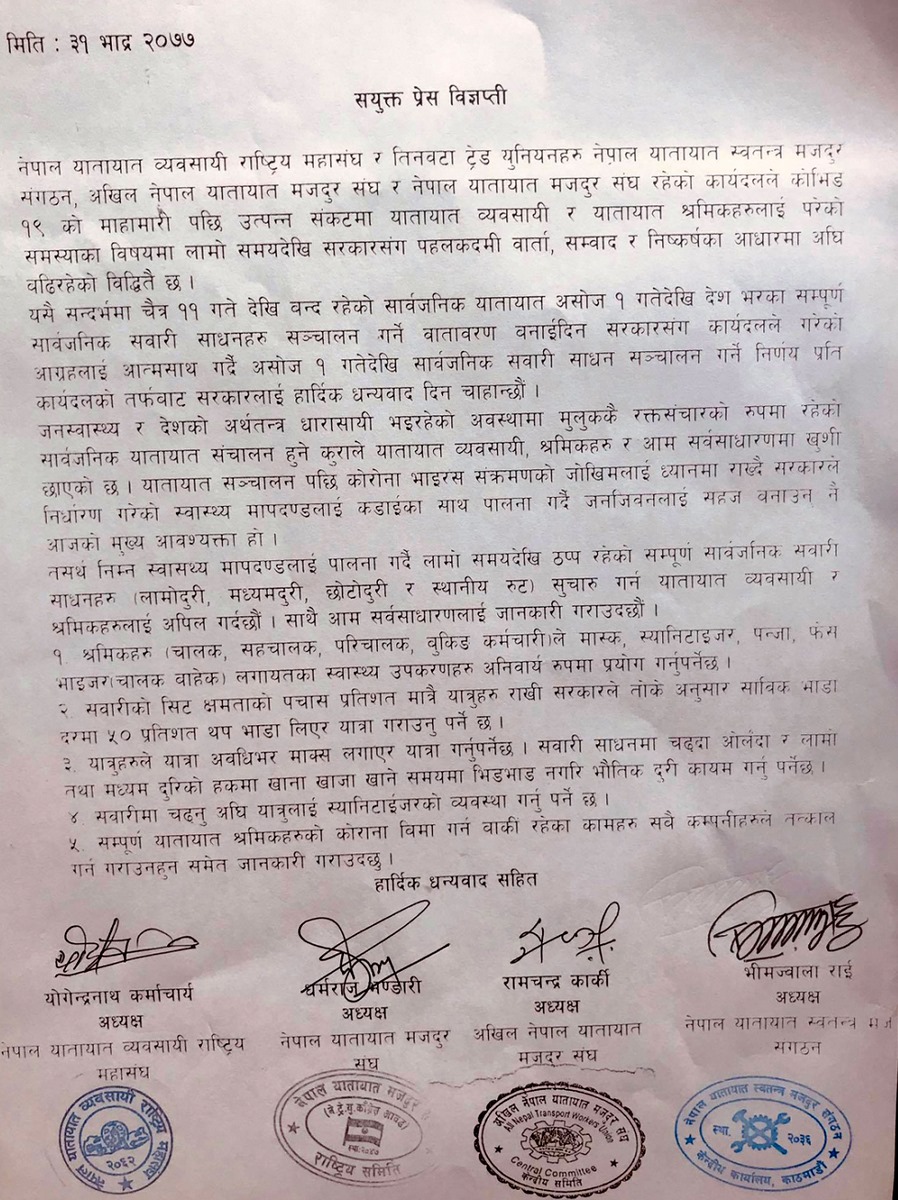 मिति : ३१ भाद्र २०७७
सयुक्त प्रेस विज्ञप्ती
नेपाल यातायात व्यवसायी राष्ट्रिय महासंघ र तिनवटा ट्रेड युनियनहरु नेपाल यातायात स्वतन्त्र मजदुर
संगठन, अखिल नेपाल यातायात मजदुर संघ र नेपाल यातायात मजदुर संघ रहेको कार्यदलले कोभिड
१९ को माहामारी पछि उत्पन्न संकटमा यातायात व्यवसायी र यातायात श्रमिकहरुलाई परेको
समस्याका विषयमा लामो समयदेखि सरकारसंग पहलकदमी वार्ता, सम्वाद र निष्कर्षका आधारमा अघि
वढिरहेको विद्धितै छ ।
यसै सन्दर्भमा चैत्र ११ गते देखि वन्द रहेको सार्वजनिक यातायात असोज १ गतेदेखि देश भरका सम्पूर्ण
सार्वजनिक सवारी साधनहरु सञ्चालन गर्ने वातावरण वनाईदिन सरकारसंग कार्यदलले गरेको
आग्रहलाई आत्मसाथ गर्दै असोज १ गतेदेखि सार्वजनिक सवारी साधन सञ्चालन गर्ने निर्णय प्रति
कार्यदलको तर्फवाट सरकारलाई हार्दिक धन्यवाद दिन चाहान्छौं ।
जनस्वास्थ्य र देशको अर्थतन्त्र धारासायी भइरहेको अवस्थामा मुलुककै रक्तसंचारको रुपमा रहेको
सार्वजनिक यातायात संचालन हुने कुराले यातायात व्यवसायी, श्रमिकहरु र आम सर्वसाधारणमा खुशी
छाएको छ । यातायात सञ्चालन पछि कोरोना भाइरस संक्रमणको जोखिमलाई ध्यानमा राख्दै सरकारले
निर्धारण गरेको स्वास्थ्य मापदण्डलाई कडाईका साथ पालना गर्दै जनजिवनलाई सहज वनाउन नै
आजको मुख्य आवश्यक्ता हो ।
तसर्थ निम्न स्वासथ्य मापदण्डलाई पालना गर्दै लामो समयदेखि ठप्प रहेको सम्पूर्ण सार्वजनिक सवारी
साधनहरु (लामोदुरी, मध्यमदुरी, छोटोदुरी र स्थानीय रुट) सुचारु गर्न यातायात व्यवसायी र
श्रमिकहरुलाई अपिल गर्दछौं । साथै आम सर्वसाधारणलाई जानकारी गराउदछौं ।
१. श्रमिकहरु (चालक, सहचालक, परिचालक, वुकिङ कर्मचारी)ले मास्क, स्यानिटाइजर, पन्जा, फेस
भाइजर(चालक वाहेक) लगायतका स्वास्थ्य उपकरणहरु अनिवार्य रुपमा प्रयोग गर्नुपर्नेछ ।
२. सवारीको सिट क्षमताको पचास प्रतिशत मात्रै यात्रुहरु राखी सरकारले तोके अनुसार साविक भाडा
दरमा ५० प्रतिशत थप भाडा लिएर यात्रा गराउनु पर्ने छ ।
३. यात्रुहरुले यात्रा अवधिभर माक्स लगाएर यात्रा गर्नुपर्नेछ । सवारी साधनमा चढ्दा ओर्लदा र लामो
तथा मध्यम दुरिको हकमा खाना खाजा खाने समयमा भिडभाड नगरि भौतिक दुरी कायम गर्नु पर्नेछ ।
४. सवारीमा चढ्नु अघि यात्रुलाई स्यानिटाईजरको व्यवस्था गर्नु पर्ने छ ।
५. सम्पूर्ण यातायात श्रमिकहरुको कोराना विमा गर्न वाकी रहेका कामहरु सवै कम्पनीहरुले तत्काल
गर्न गराउनहुन समेत जानकारी गराउदछु ।
हार्दिक धन्यवाद सहित
योगेन्द्रनाथ कर्माचार्य
अध्यक्ष
नेपाल यातायात व्यवसायी राष्ट्रिय
महासंघ
धर्मराज भण्डारी
अध्यक्ष
नेपाल यातायात मजदुर
संघ
रामचन्द्र कार्की
अध्यक्ष
अखिल नेपाल यातायात
मजदुर संघ
भीमज्वाला राई
अध्यक्ष
नेपाल यातायात स्वतन्त्र मज
संगठन
नेपाल यातायात व्यवसायी राष्ट्रिय महासंघ
२०६२
नेपाल यातायात मजदुर
राष्ट्रिय समिति
अखिल नेपाल यातायात मजदुर संघ
All Nepal Transport Workers Union
Central Committee
केन्द्रीय समिति
नेपाल यातायात स्वतन्त्र मजदुर संगठन
स्था. २०३६
केन्द्रीय कार्यालय, काठमाडौं